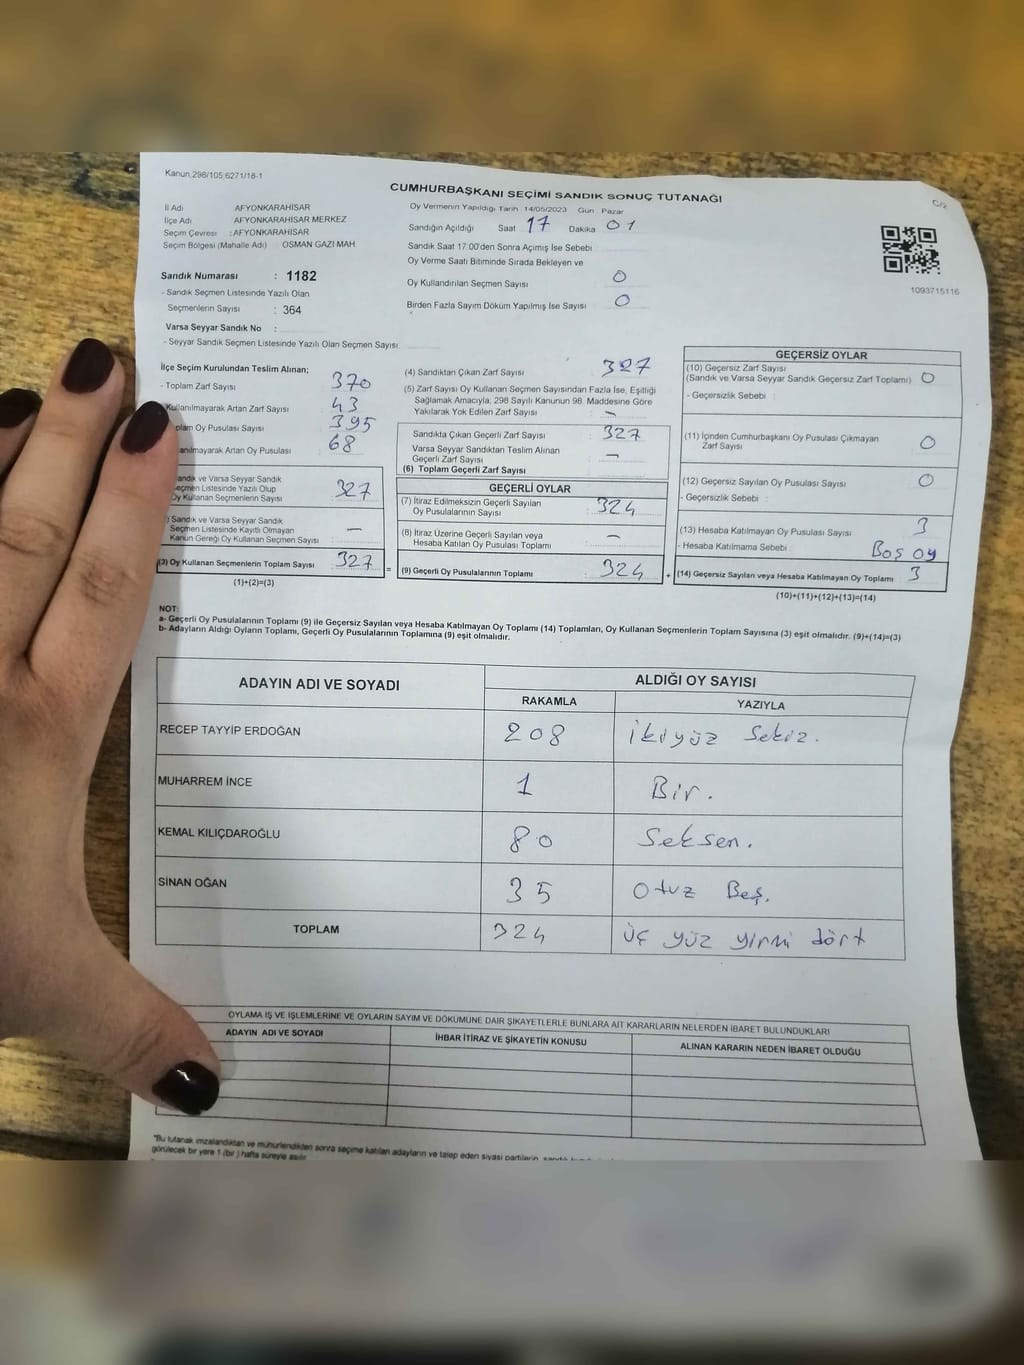 Kanun:298/105;6271/18-1
CUMHURBAŞKANI SEÇİMİ SANDIK SONUÇ TUTANAĞI
C/2
İl Adı AFYONKARAHİSAR
İlçe Adı AFYONKARAHİSAR MERKEZ
Seçim Çevresi : AFYONKARAHİSAR
Seçim Bölgesi (Mahalle Adı) : OSMAN GAZI MAH
Sandık Numarası : 1182
- Sandık Seçmen Listesinde Yazılı Olan
Seçmenlerin Sayısı : 364
Varsa Seyyar Sandık No :
- Seyyar Sandık Seçmen Listesinde Yazılı Olan Seçmen Sayısı:
Oy Vermenin Yapıldığı Tarih 14/05/2023 Gün : Pazar
Sandığın Açıldığı Saat 17 Dakika 01
Sandık Saat 17:00'den Sonra Açımış İse Sebebi
Oy Verme Saati Bitiminde Sırada Bekleyen ve
Oy Kullandırılan Seçmen Sayısı 0
Birden Fazla Sayım Döküm Yapılmış İse Sayısı 0
1093715116
İlçe Seçim Kurulundan Teslim Alınan;
- Toplam Zarf Sayısı 370
Kullanılmayarak Artan Zarf Sayısı 43
plam Oy Pusulası Sayısı 395
anılmayarak Artan Oy Pusulası 68
andık ve Varsa Seyyar Sandık
eçmen Listesinde Yazılı Olup
Oy Kullanan Seçmenlerin Sayısı 327
) Sandık ve Varsa Seyyar Sandık
Seçmen Listesinde Kayıtlı Olmayan
Kanun Gereği Oy Kullanan Seçmen Sayısı : —
(3) Oy Kullanan Seçmenlerin Toplam Sayısı 327
(1)+(2)=(3)
=
(4) Sandıktan Çıkan Zarf Sayısı : 327
(5) Zarf Sayısı Oy Kullanan Seçmen Sayısından Fazla İse, Eşitliği
Sağlamak Amacıyla, 298 Sayılı Kanunun 98. Maddesine Göre
Yakılarak Yok Edilen Zarf Sayısı : —
Sandıkta Çıkan Geçerli Zarf Sayısı : 327
Varsa Seyyar Sandıktan Teslim Alınan
Geçerli Zarf Sayısı : —
(6) Toplam Geçerli Zarf Sayısı
GEÇERLİ OYLAR
(7) İtiraz Edilmeksizin Geçerli Sayılan
Oy Pusulalarının Sayısı : 324
(8) İtiraz Üzerine Geçerli Sayılan veya
Hesaba Katılan Oy Pusulası Toplamı : —
(9) Geçerli Oy Pusulalarının Toplamı : 324
+
GEÇERSİZ OYLAR
(10) Geçersiz Zarf Sayısı
(Sandık ve Varsa Seyyar Sandık Geçersiz Zarf Toplamı) 0
- Geçersizlik Sebebi :
(11) İçinden Cumhurbaşkanı Oy Pusulası Çıkmayan
Zarf Sayısı 0
(12) Geçersiz Sayılan Oy Pusulası Sayısı 0
- Geçersizlik Sebebi :
(13) Hesaba Katılmayan Oy Pusulası Sayısı 3
- Hesaba Katılmama Sebebi : Boş oy
(14) Geçersiz Sayılan veya Hesaba Katılmayan Oy Toplamı 3
(10)+(11)+(12)+(13)=(14)
NOT:
a- Geçerli Oy Pusulalarının Toplamı (9) ile Geçersiz Sayılan veya Hesaba Katılmayan Oy Toplamı (14) Toplamları, Oy Kullanan Seçmenlerin Toplam Sayısına (3) eşit olmalıdır. (9)+(14)=(3)
b- Adayların Aldığı Oyların Toplamı, Geçerli Oy Pusulalarının Toplamına (9) eşit olmalıdır.
ADAYIN ADI VE SOYADI
ALDIĞI OY SAYISI
RAKAMLA YAZIYLA
RECEP TAYYİP ERDOĞAN 208 ikiyüz Sekiz.
MUHARREM İNCE 1 Bir.
KEMAL KILIÇDAROĞLU 80 Seksen.
SİNAN OĞAN 35 Otuz Beş.
TOPLAM 324 üç yüz yirmi dört
OYLAMA İŞ VE İŞLEMLERİNE VE OYLARIN SAYIM VE DÖKÜMÜNE DAİR ŞİKAYETLERLE BUNLARA AİT KARARLARIN NELERDEN İBARET BULUNDUKLARI
ADAYIN ADI VE SOYADI İHBAR İTİRAZ VE ŞİKAYETİN KONUSU ALINAN KARARIN NEDEN İBARET OLDUĞU
"Bu tutanak imzalandıktan ve mühürlendikten sonra seçime katılan adayların ve talep eden siyasi partilerin,
görülecek bir yere 1 (bir) hafta süreyle asılır